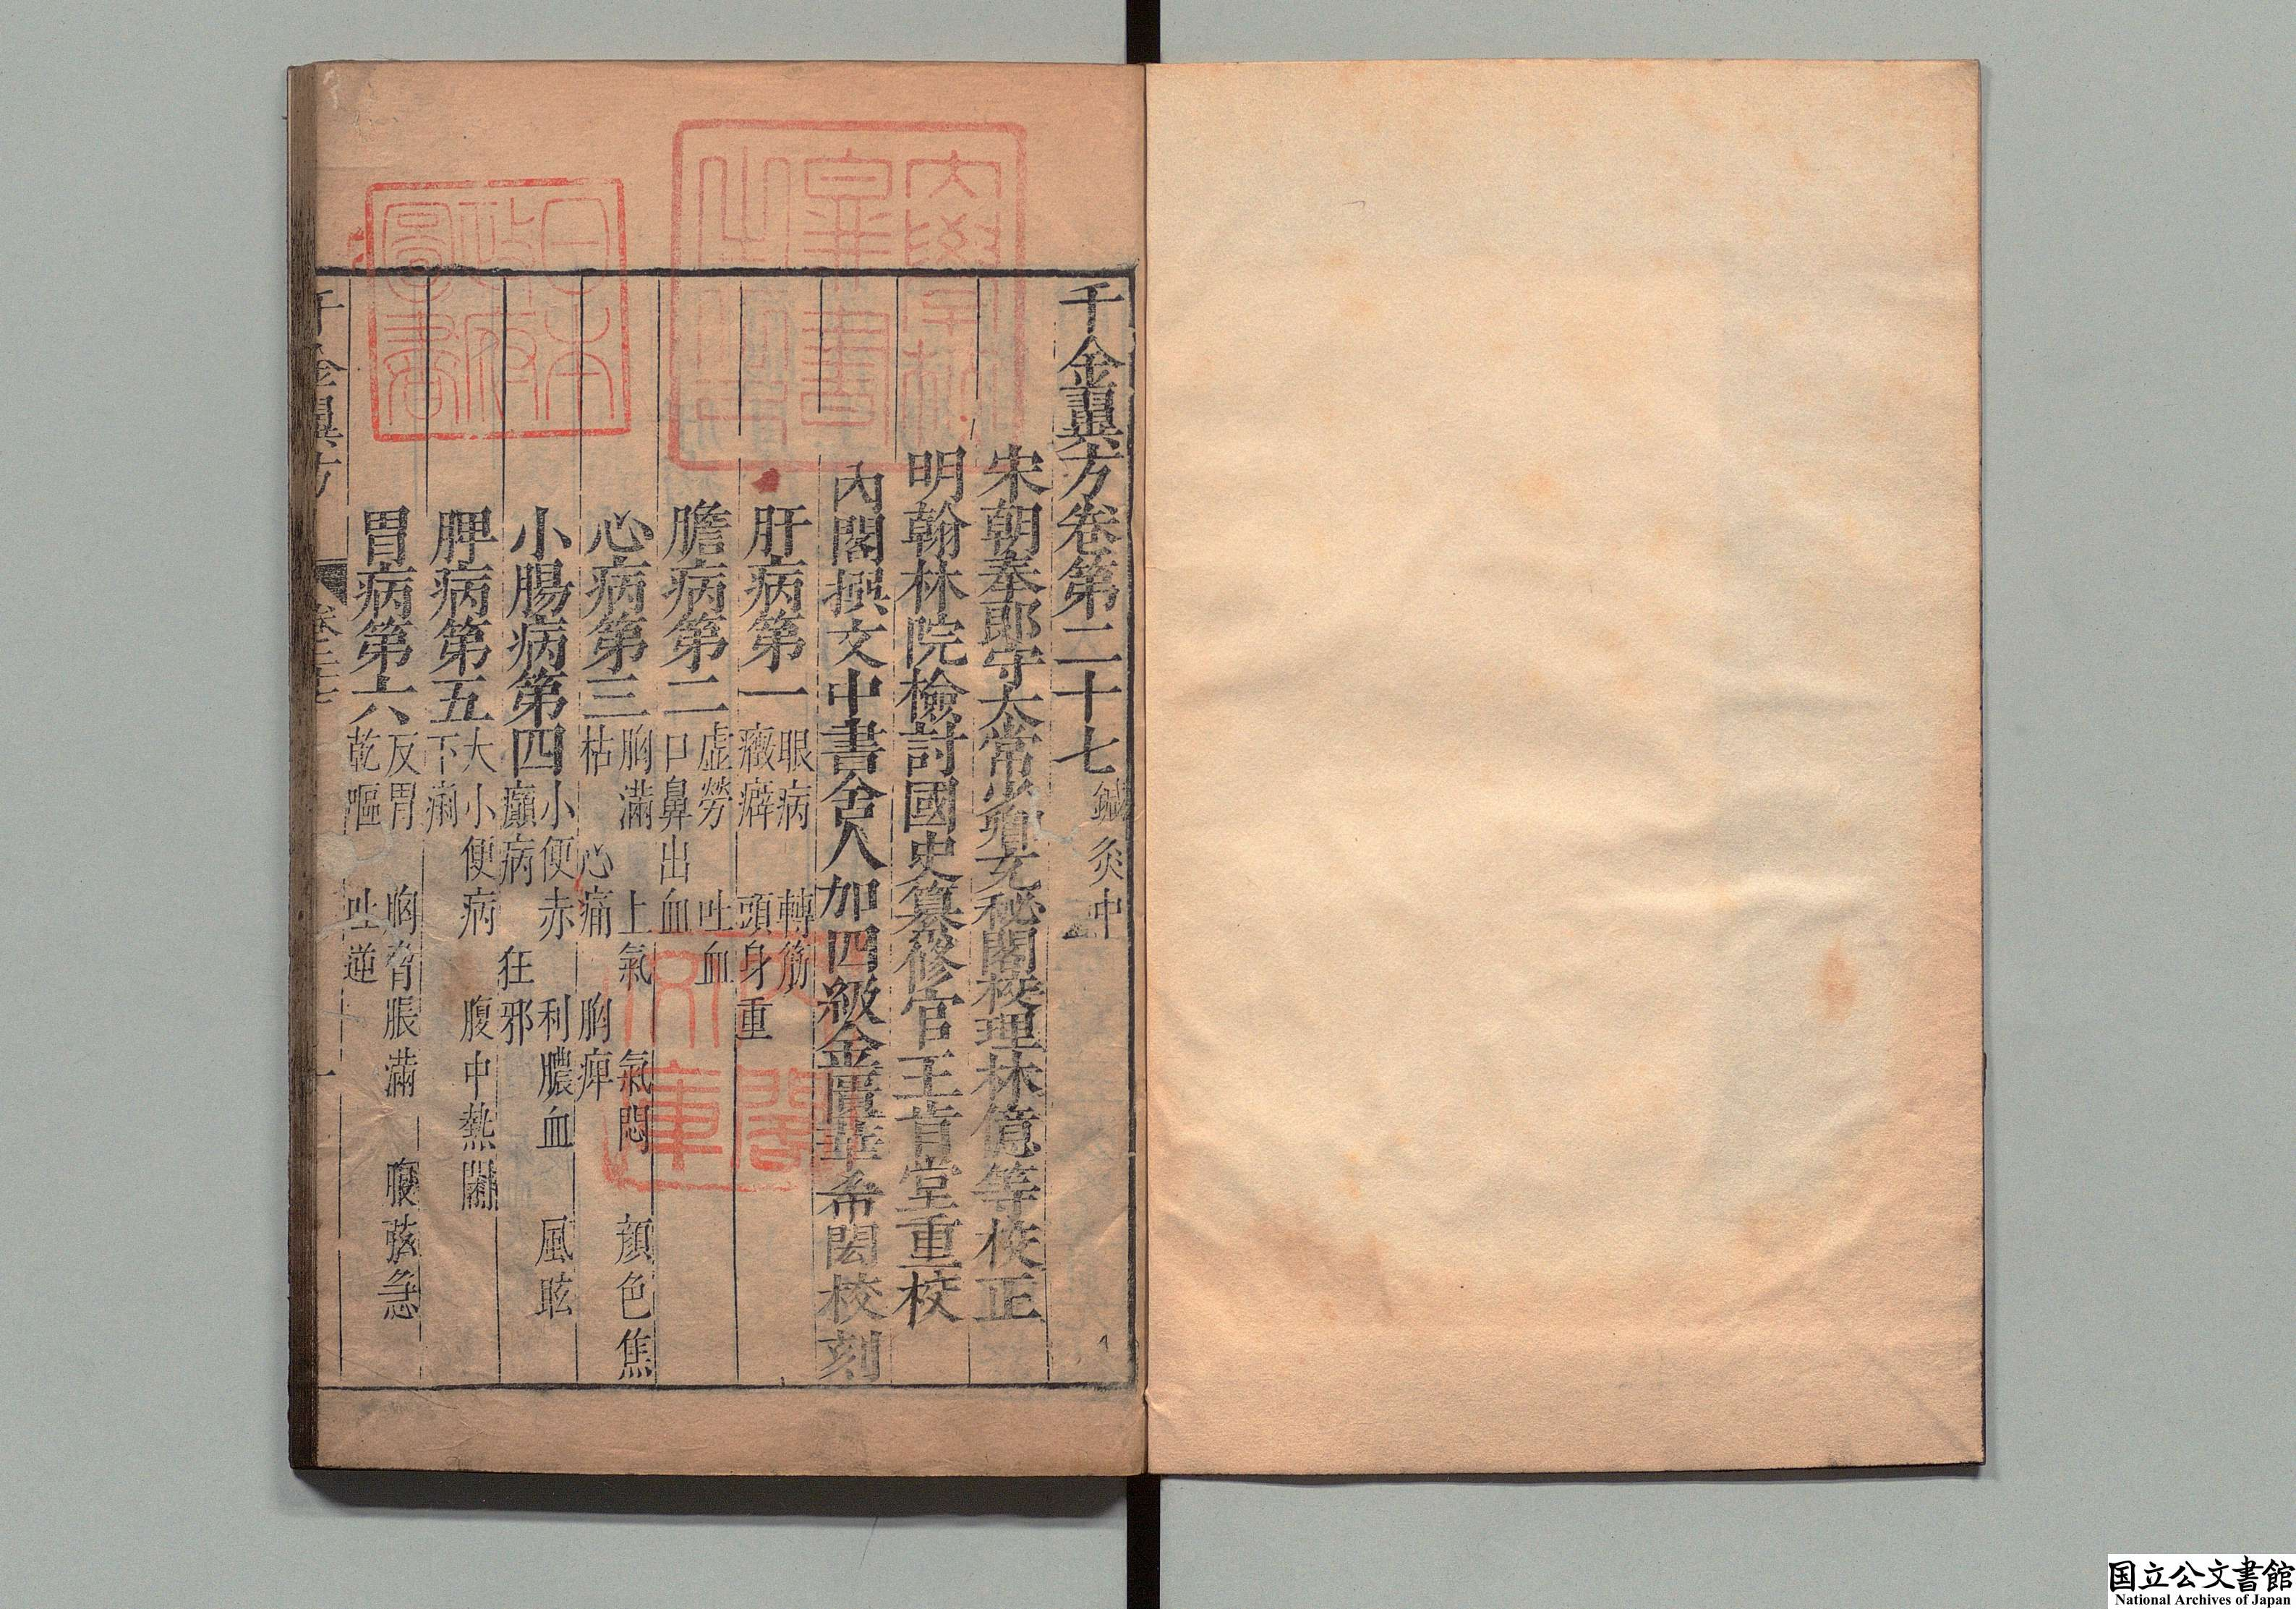 千金翼方卷第二十七 鍼灸中
宋朝奉郎守太常少卿充秘閣校理林億等校正
明翰林院檢討國史纂修官王肯堂重校
內閣撰文中書舍人加四級金匱華希閎校刻
肝病第一 眼病 轉筋
癥癖 頭身重
膽病第二 虛勞 吐血
口鼻出血
心病第三 胸滿 上氣 氣悶 顏色焦
枯 心痛 胸痺
小腸病第四 小便赤 利膿血 風眩
癲病 狂邪
脾病第五 大小便病 腹中熱鬧
下痢
胃病第六 反胃 胸脅脹滿 腹弦急
乾嘔 吐逆
千金翼方 卷二十七 一
日本
政府
圖書
大學校
圖書
之印
內閣
文庫
国立公文書館
National Archives of Japan